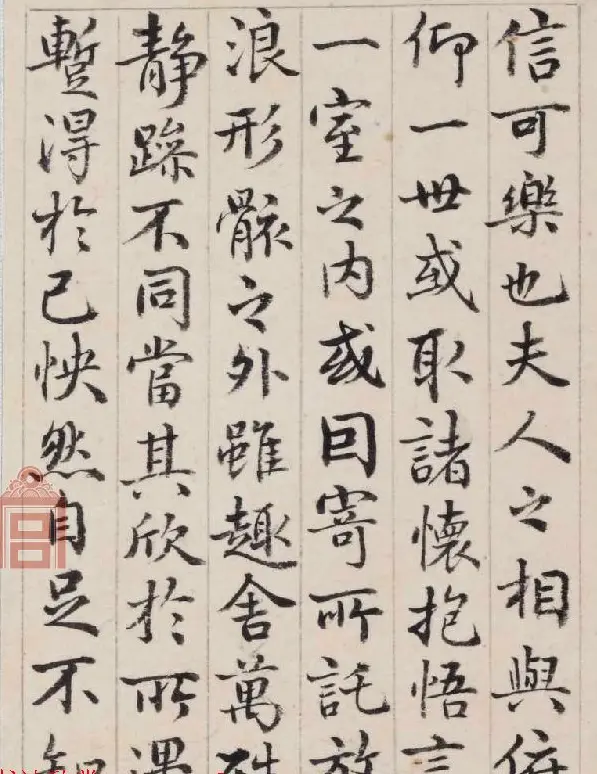 信可樂也夫人之相與俯
仰一世或取諸懷抱悟言
一室之内或因寄所託放
浪形骸之外雖趣舍萬殊
静躁不同當其欣於所遇
蹔得於己怏然自足不知